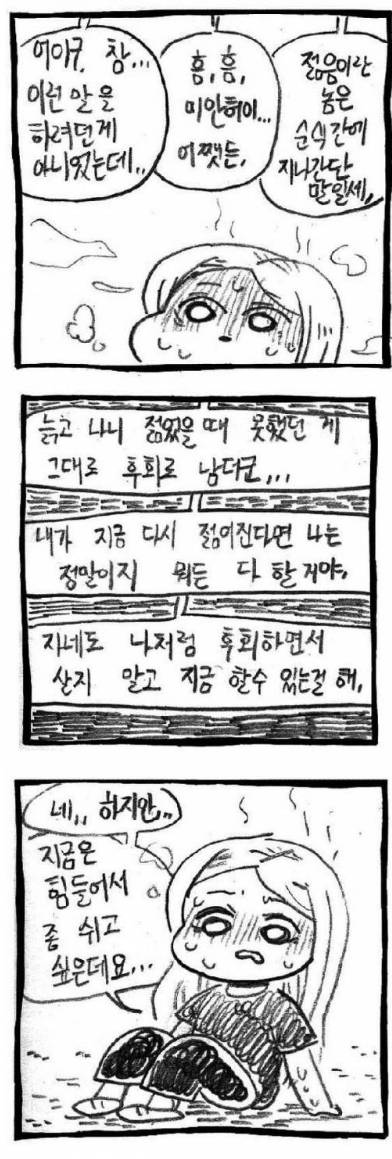 어이구, 참...
이런 말을
하려던게
아니었는데..
흠, 흠,
미안허이...
어쨋든,
젊음이란
놈은
순식간에
지나간단
말일세,
늙고 나니 젊었을 때 못했던 게
그대로 후회로 남더군...
내가 지금 다시 젊어진다면 나는
정말이지 뭐든 다 할거야,
자네도 나처럼 후회하면서
살지 말고 지금 할수 있는걸 해,
네,, 하지만,..
지금은
힘들어서
좀 쉬고
싶은데요...